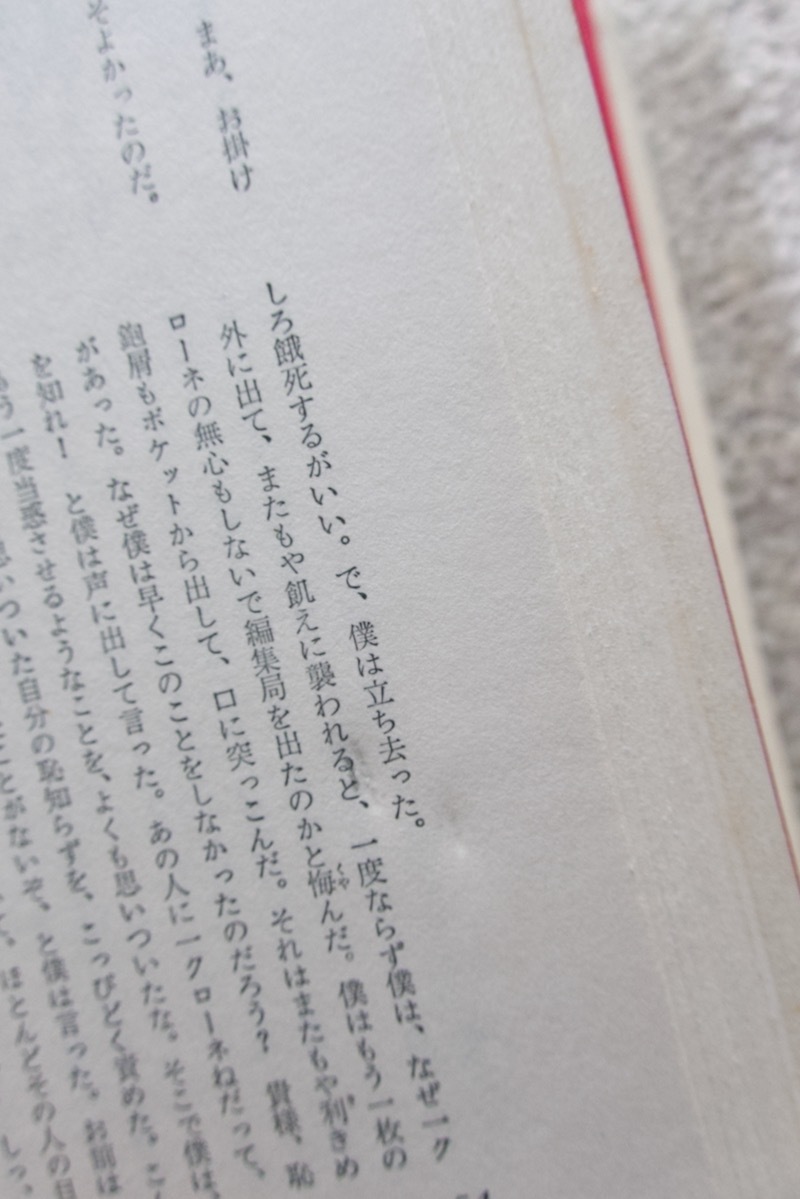 まあ、お掛け
そよかったのだ。
しろ餓死するがいい。で、僕は立ち去った。
外に出て、またもや飢えに襲われると、一度ならず僕は、なぜ一ク
ローネの無心もしないで編集局を出たのかと悔んだ。僕はもう一枚の
鉋屑もポケットから出して、口に突っこんだ。それはまたもや利きめ
があった。なぜ僕は早くこのことをしなかったのだろう？　貴様、恥
を知れ！　と僕は声に出して言った。あの人に一クローネねだって、
う一度当惑させるようなことを、よくも思いついたな。そこで僕は、
思いついた自分の恥知らずを、こっぴどく責めた。こん
ことがないぞ、と僕は言った。お前は
ほとんどその人の目